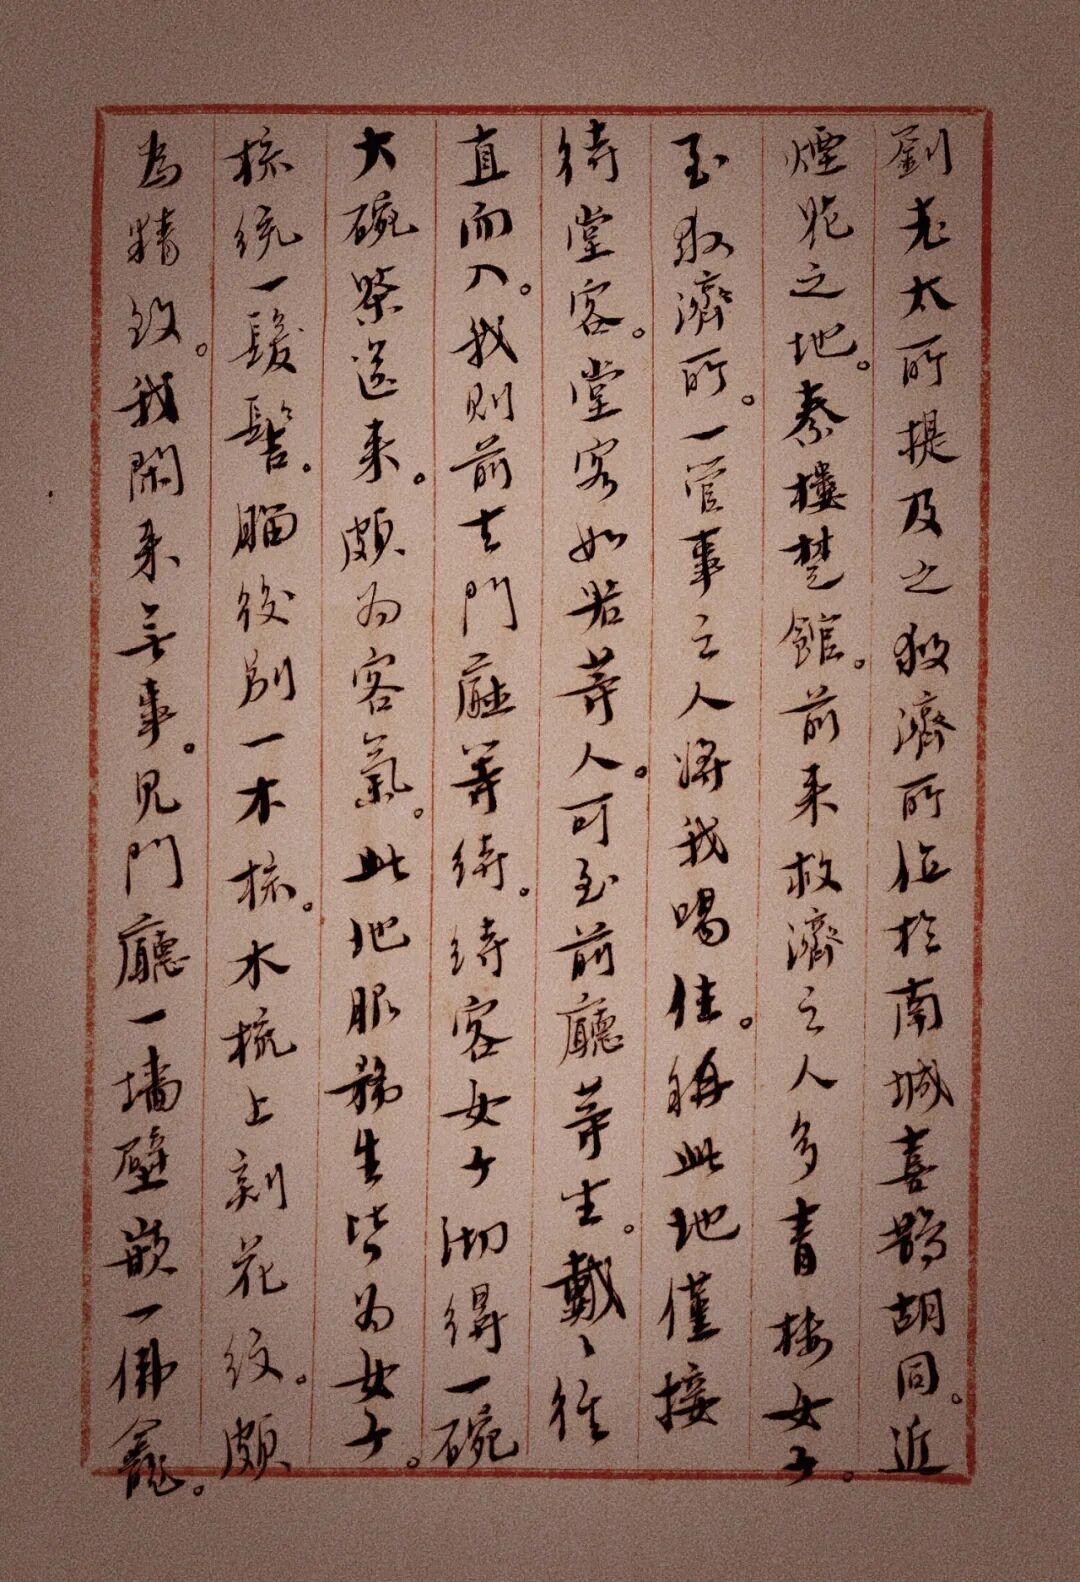 劉老太所提及之救濟所位於南城喜鵲胡同。近
煙花之地。秦樓楚館。前來救濟之人多青楼女子。
至救濟所。一管事之人將我喝住。稱此地僅接
待堂客。堂客如若等人。可至前廳等坐。戴々徑
直而入。我則前去門廳等待。待客女子沏得一碗
大碗茶送来。頗为客氣。此地服務生皆为女子。
梳統一髮髻。腦後別一木梳。木梳上刻花纹。頗
為精致。我閑来無事。見門廳一墙壁嵌一佛龕。